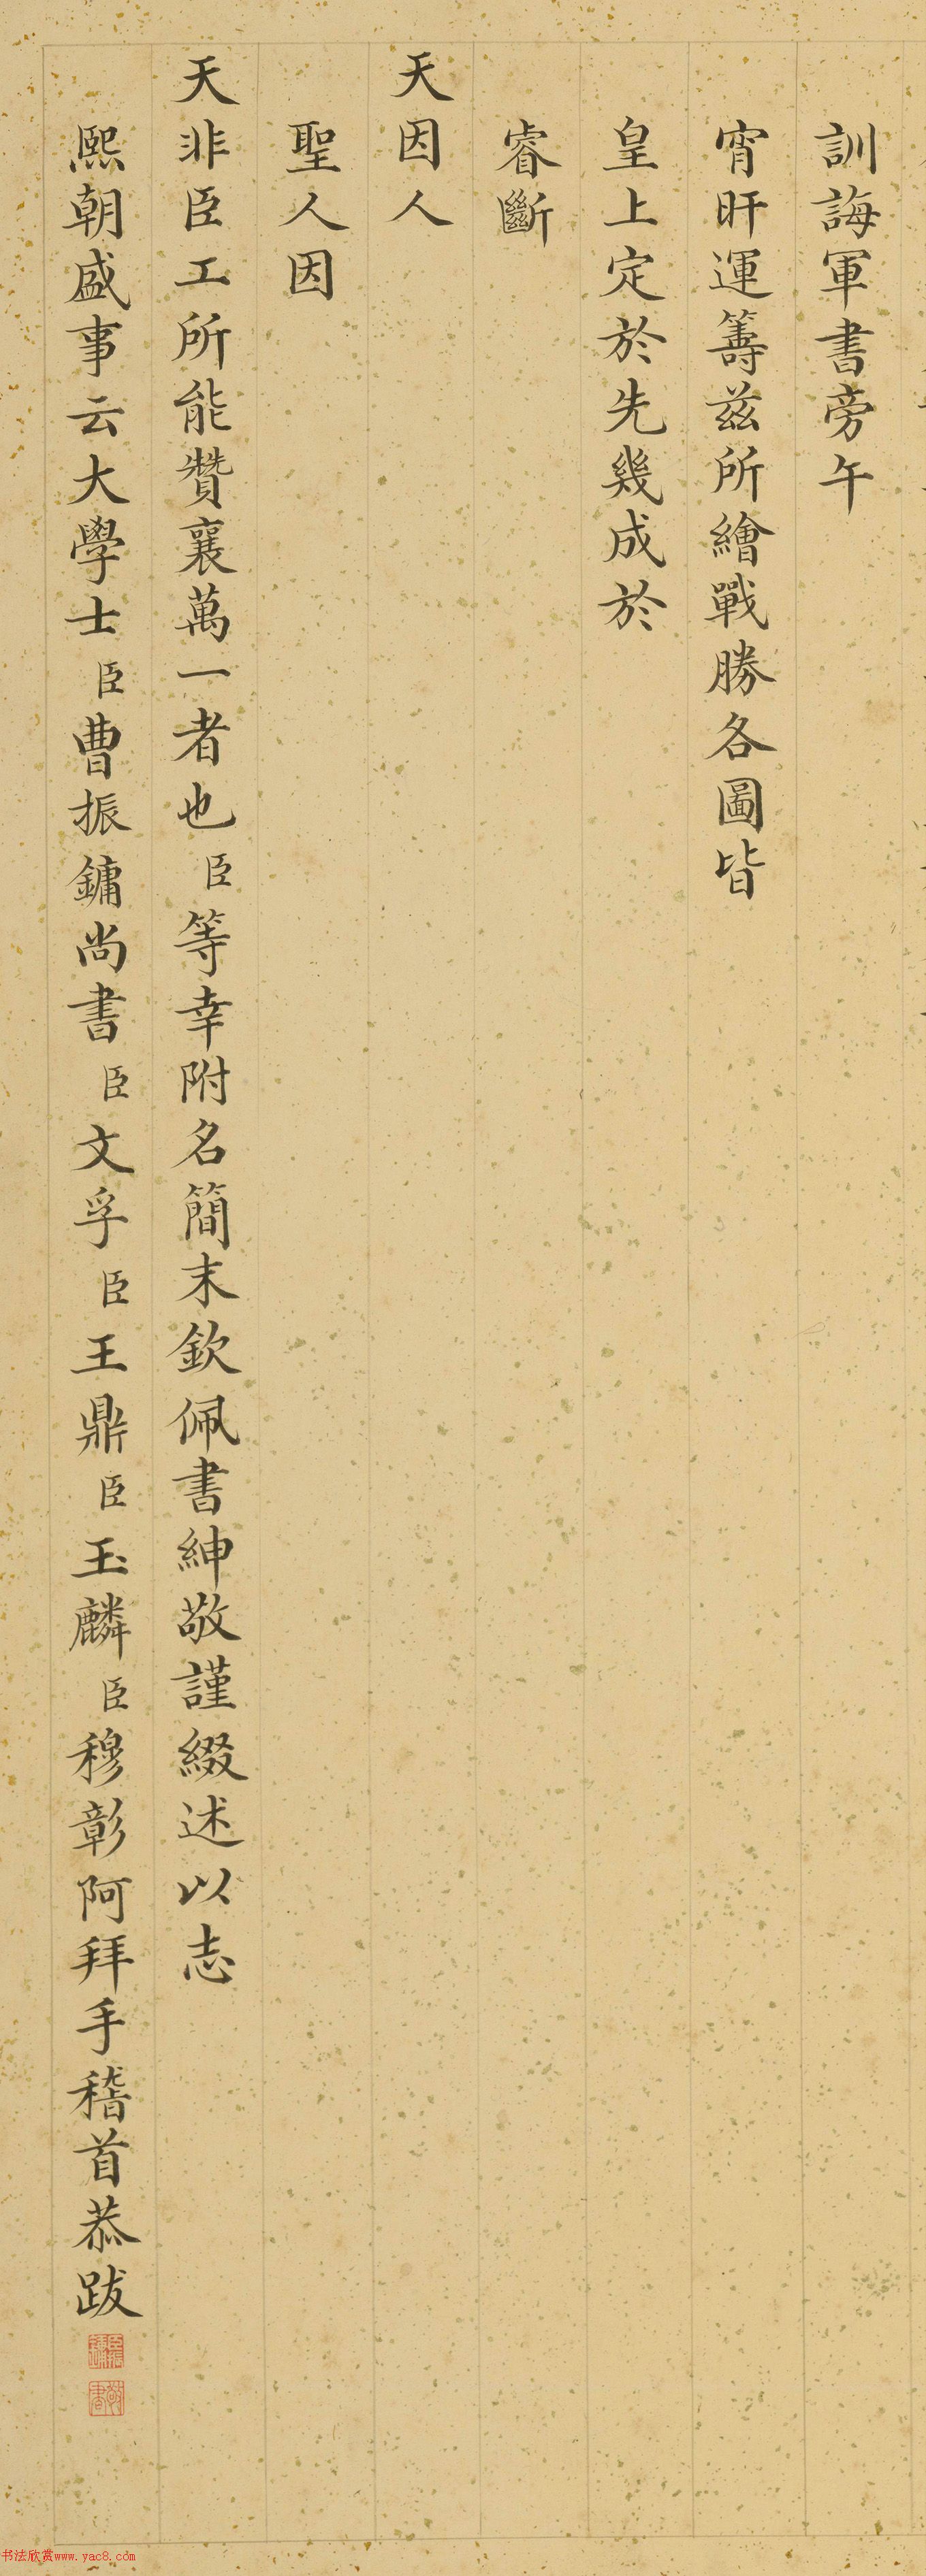 訓誨軍書旁午
宵旰運籌兹所繪戰勝各圖皆
皇上定於先幾成於
睿斷
天因人
聖人因
天非臣工所能贊襄萬一者也臣等幸附名簡末欽佩書紳敬謹綴述以志
熙朝盛事云大學士臣曹振鏞尚書臣文孚臣王鼎臣玉麟臣穆彰阿拜手稽首恭跋
敬書
书法欣赏www.yac8.com